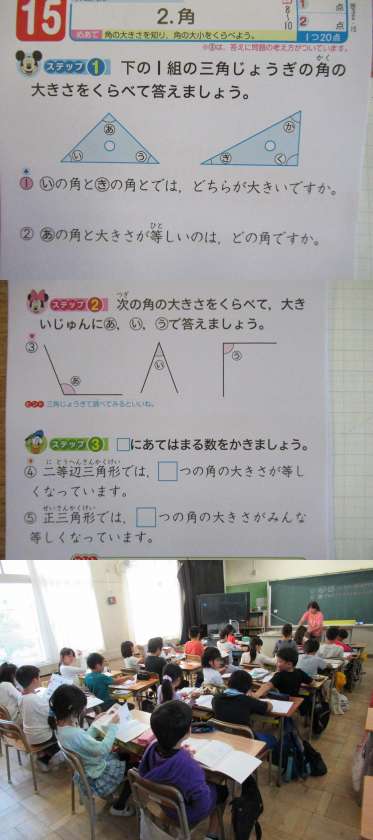 15
2.角
めあて 角の大きさを知り，角の大小をくらべよう。
8〜10
1 点
2 点
1つ20点
※③は，答えに問題の考え方がついています。
ステップ1 下の1組の三角じょうぎの角の
かく
大きさをくらべて答えましょう。
あ
い
う
か
き
く
① いの角ときの角とでは，どちらが大きいですか。
② あの角と大きさが等しいのは，どの角ですか。
ひと
ステップ2 次の角の大きさをくらべて，大き
つぎ
いじゅんにあ，い，うで答えましょう。
③
あ
い
う
ヒント 三角じょうぎで調べてみるといいね。
ステップ3 □にあてはまる数をかきましょう。
にとうへんさんかくけい
④ 二等辺三角形では，□つの角の大きさが等し
くなっています。
せいさんかくけい
⑤ 正三角形では，□つの角の大きさがみんな
等しくなっています。